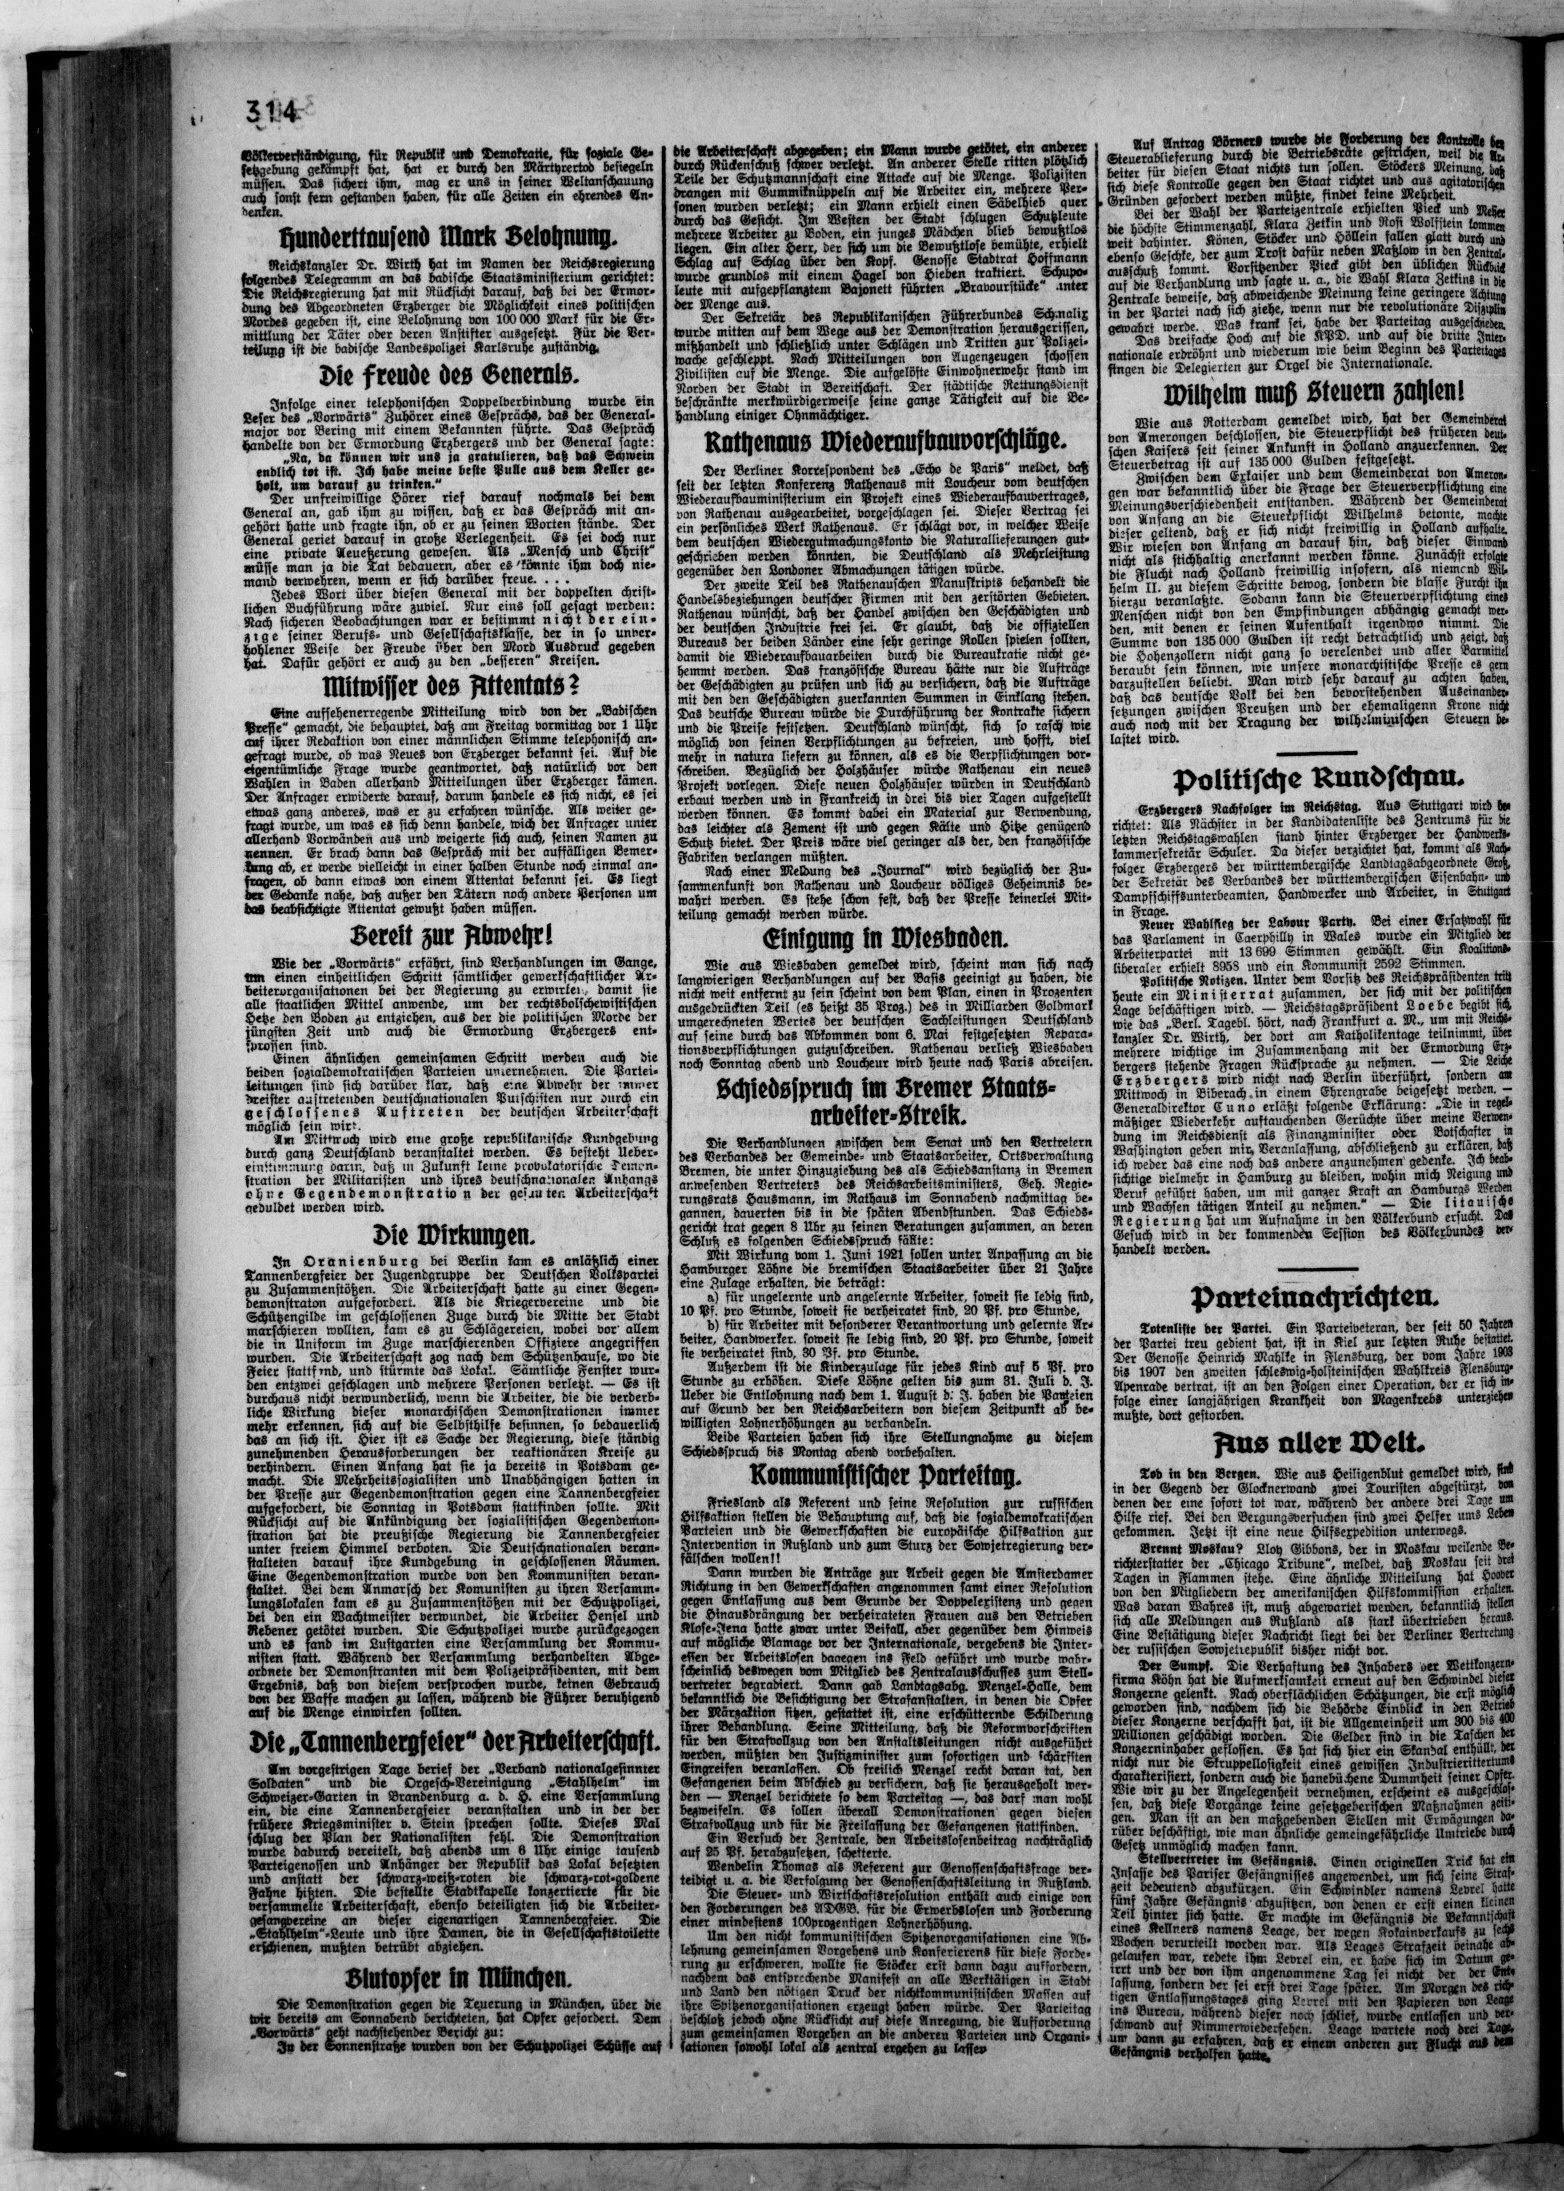 314
Völkerverständigung, für Republik und Demokratie, für soziale Ge-
setzgebung gekämpft hat, hat er durch den Märtyrertod besiegeln
müssen. Das sichert ihm, mag er uns in seiner Weltanschauung
auch sonst fern gestanden haben, für alle Zeiten ein ehrendes An-
denken.
Hunderttausend Mark Belohnung.
Reichskanzler Dr. Wirth hat im Namen der Reichsregierung
folgendes Telegramm an das badische Staatsministerium gerichtet:
Die Reichsregierung hat mit Rücksicht darauf, daß bei der Ermor-
dung des Abgeordneten Erzberger die Möglichkeit eines politischen
Mordes gegeben ist, eine Belohnung von 100 000 Mark für die Er-
mittlung der Täter oder deren Anstifter ausgesetzt. Für die Ver-
teilung ist die badische Landespolizei Karlsruhe zuständig.
Die Freude des Generals.
Infolge einer telephonischen Doppelverbindung wurde ein
Leser des „Vorwärts“ Zuhörer eines Gesprächs, das der General-
major vor Bering mit einem Bekannten führte. Das Gespräch
handelte von der Ermordung Erzbergers und der General sagte:
„Na, da können wir uns ja gratulieren, daß das Schwein
endlich tot ist. Ich habe meine beste Pulle aus dem Keller ge-
holt, um darauf zu trinken.“
Der unfreiwillige Hörer rief darauf nochmals bei dem
General an, gab ihm zu wissen, daß er das Gespräch mit an-
gehört hatte und fragte ihn, ob er zu seinen Worten stände. Der
General geriet darauf in große Verlegenheit. Es sei doch nur
eine private Aeußerung gewesen. Als „Mensch und Christ“
müsse man ja die Tat bedauern, aber es könnte ihm doch nie-
mand verwehren, wenn er sich darüber freue. . . .
Jedes Wort über diesen General mit der doppelten christ-
lichen Buchführung wäre zuviel. Nur eins soll gesagt werden:
Nach sicheren Beobachtungen war er bestimmt nicht der ein-
zige seiner Berufs- und Gesellschaftsklasse, der in so unver-
hohlener Weise der Freude über den Mord Ausdruck gegeben
hat. Dafür gehört er auch zu den „besseren“ Kreisen.
Mitwisser des Attentats?
Eine aufsehenerregende Mitteilung wird von der „Badischen
Presse“ gemacht, die behauptet, daß am Freitag vormittag vor 1 Uhr
auf ihrer Redaktion von einer männlichen Stimme telephonisch an-
gefragt wurde, ob was Neues von Erzberger bekannt sei. Auf die
eigentümliche Frage wurde geantwortet, daß natürlich vor den
Wahlen in Baden allerhand Mitteilungen über Erzberger kämen.
Der Anfrager erwiderte darauf, darum handele es sich nicht, es sei
etwas ganz anderes, was er zu erfahren wünsche. Als weiter ge-
fragt wurde, um was es sich denn handele, wich der Anfrager unter
allerhand Vorwänden aus und weigerte sich auch, seinen Namen zu
nennen. Er brach dann das Gespräch mit der auffälligen Bemer-
kung ab, er werde vielleicht in einer halben Stunde noch einmal an-
fragen, ob dann etwas von einem Attentat bekannt sei. Es liegt
der Gedanke nahe, daß außer den Tätern noch andere Personen um
das beabsichtigte Attentat gewußt haben müssen.
Bereit zur Abwehr!
Wie der „Vorwärts“ erfährt, sind Verhandlungen im Gange,
um einen einheitlichen Schritt sämtlicher gewerkschaftlicher Ar-
beiterorganisationen bei der Regierung zu erwirken, damit sie
alle staatlichen Mittel anwende, um der rechtsbolschewistischen
Hetze den Boden zu entziehen, aus der die politischen Morde der
jüngsten Zeit und auch die Ermordung Erzbergers ent-
sprossen sind.
Einen ähnlichen gemeinsamen Schritt werden auch die
beiden sozialdemokratischen Parteien unternehmen. Die Partei-
leitungen sind sich darüber klar, daß eine Abwehr der immer
dreister auftretenden deutschnationalen Putschisten nur durch ein
geschlossenes Auftreten der deutschen Arbeiterschaft
möglich sein wird.
Am Mittwoch wird eine große republikanische Kundgebung
durch ganz Deutschland veranstaltet werden. Es besteht Ueber-
einstimmung darin, daß in Zukunft keine provokatorische Demon-
stration der Militaristen und ihres deutschnationalen Anhangs
ohne Gegendemonstration der gesamten Arbeiterschaft
geduldet werden wird.
Die Wirkungen.
In Oranienburg bei Berlin kam es anläßlich einer
Tannenbergfeier der Jugendgruppe der Deutschen Volkspartei
zu Zusammenstößen. Die Arbeiterschaft hatte zu einer Gegen-
demonstraton aufgefordert. Als die Kriegervereine und die
Schützengilde im geschlossenen Zuge durch die Mitte der Stadt
marschieren wollten, kam es zu Schlägereien, wobei vor allem
die in Uniform im Zuge marschierenden Offiziere angegriffen
wurden. Die Arbeiterschaft zog nach dem Schützenhause, wo die
Feier stattfand, und stürmte das Lokal. Sämtliche Fenster wur-
den entzwei geschlagen und mehrere Personen verletzt. — Es ist
durchaus nicht verwunderlich, wenn die Arbeiter, die die verderb-
liche Wirkung dieser monarchischen Demonstrationen immer
mehr erkennen, sich auf die Selbsthilfe besinnen, so bedauerlich
das an sich ist. Hier ist es Sache der Regierung, diese ständig
zunehmenden Herausforderungen der reaktionären Kreise zu
verhindern. Einen Anfang hat sie ja bereits in Potsdam ge-
macht. Die Mehrheitssozialisten und Unabhängigen hatten in
der Presse zur Gegendemonstration gegen eine Tannenbergfeier
aufgefordert, die Sonntag in Potsdam stattfinden sollte. Mit
Rücksicht auf die Ankündigung der sozialistischen Gegendemon-
stration hat die preußische Regierung die Tannenbergfeier
unter freiem Himmel verboten. Die Deutschnationalen veran-
stalteten darauf ihre Kundgebung in geschlossenen Räumen.
Eine Gegendemonstration wurde von den Kommunisten veran-
staltet. Bei dem Anmarsch der Komunisten zu ihren Versamm-
lungslokalen kam es zu Zusammenstößen mit der Schutzpolizei,
bei den ein Wachtmeister verwundet, die Arbeiter Hensel und
Rebener getötet wurden. Die Schutzpolizei wurde zurückgezogen
und es fand im Lustgarten eine Versammlung der Kommu-
nisten statt. Während der Versammlung verhandelten Abge-
ordnete der Demonstranten mit dem Polizeipräsidenten, mit dem
Ergebnis, daß von diesem versprochen wurde, keinen Gebrauch
von der Waffe machen zu lassen, während die Führer beruhigend
auf die Menge einwirken sollten.
Die „Tannenbergfeier“ der Arbeiterschaft.
Am vorgestrigen Tage berief der „Verband nationalgesinnter
Soldaten“ und die Orgesch-Vereinigung „Stahlhelm“ im
Schweizer-Garten in Brandenburg a. d. H. eine Versammlung
ein, die eine Tannenbergfeier veranstalten und in der der
frühere Kriegsminister v. Stein sprechen sollte. Dieses Mal
schlug der Plan der Nationalisten fehl. Die Demonstration
wurde dadurch vereitelt, daß abends um 6 Uhr einige tausend
Parteigenossen und Anhänger der Republik das Lokal besetzten
und anstatt der schwarz-weiß-roten die schwarz-rot-goldene
Fahne hißten. Die bestellte Stadtkapelle konzertierte für die
versammelte Arbeiterschaft, ebenso beteiligten sich die Arbeiter-
gesangvereine an dieser eigenartigen Tannenbergfeier. Die
„Stahlhelm“-Leute und ihre Damen, die in Gesellschaftstoilette
erschienen, mußten betrübt abziehen.
Blutopfer in München.
Die Demonstration gegen die Teuerung in München, über die
wir bereits am Sonnabend berichteten, hat Opfer gefordert. Dem
„Vorwärts“ geht nachstehender Bericht zu:
In der Sonnenstraße wurden von der Schutzpolizei Schüsse auf
die Arbeiterschaft abgegeben; ein Mann wurde getötet, ein anderer
durch Rückenschuß schwer verletzt. An anderer Stelle ritten plötzlich
Teile der Schutzmannschaft eine Attacke auf die Menge. Polizisten
drangen mit Gummiknüppeln auf die Arbeiter ein, mehrere Per-
sonen wurden verletzt; ein Mann erhielt einen Säbelhieb quer
durch das Gesicht. Im Westen der Stadt schlugen Schutzleute
mehrere Arbeiter zu Boden, ein junges Mädchen blieb bewußtlos
liegen. Ein alter Herr, der sich um die Bewußtlose bemühte, erhielt
Schlag auf Schlag über den Kopf. Genosse Stadtrat Hoffmann
wurde grundlos mit einem Hagel von Hieben traktiert. Schupo-
leute mit aufgepflanztem Bajonett führten „Bravourstücke“ unter
der Menge aus.
Der Sekretär des Republikanischen Führerbundes Schmalix
wurde mitten auf dem Wege aus der Demonstration herausgerissen,
mißhandelt und schließlich unter Schlägen und Tritten zur Polizei-
wache geschleppt. Nach Mitteilungen von Augenzeugen schossen
Zivilisten auf die Menge. Die aufgelöste Einwohnerwehr stand im
Norden der Stadt in Bereitschaft. Der städtische Rettungsdienst
beschränkte merkwürdigerweise seine ganze Tätigkeit auf die Be-
handlung einiger Ohnmächtiger.
Rathenaus Wiederaufbauvorschläge.
Der Berliner Korrespondent des „Echo de Paris“ meldet, daß
seit der letzten Konferenz Rathenaus mit Loucheur vom deutschen
Wiederaufbauministerium ein Projekt eines Wiederaufbauvertrages,
von Rathenau ausgearbeitet, vorgeschlagen sei. Dieser Vertrag sei
ein persönliches Werk Rathenaus. Er schlägt vor, in welcher Weise
dem deutschen Wiedergutmachungskonto die Naturallieferungen gut-
geschrieben werden könnten, die Deutschland als Mehrleistung
gegenüber den Londoner Abmachungen tätigen würde.
Der zweite Teil des Rathenauschen Manuskripts behandelt die
Handelsbeziehungen deutscher Firmen mit den zerstörten Gebieten.
Rathenau wünscht, daß der Handel zwischen den Geschädigten und
der deutschen Industrie frei sei. Er glaubt, daß die offiziellen
Bureaus der beiden Länder eine sehr geringe Rollen spielen sollten,
damit die Wiederaufbauarbeiten durch die Bureaukratie nicht ge-
hemmt werden. Das französische Bureau hätte nur die Aufträge
der Geschädigten zu prüfen und sich zu versichern, daß die Aufträge
mit den den Geschädigten zuerkannten Summen in Einklang stehen.
Das deutsche Bureau würde die Durchführung der Kontrakte sichern
und die Preise festsetzen. Deutschland wünscht, sich so rasch wie
möglich von seinen Verpflichtungen zu befreien, und hofft, viel
mehr in natura liefern zu können, als es die Verpflichtungen vor-
schreiben. Bezüglich der Holzhäuser würde Rathenau ein neues
Projekt vorlegen. Diese neuen Holzhäuser würden in Deutschland
erbaut werden und in Frankreich in drei bis vier Tagen aufgestellt
werden können. Es kommt dabei ein Material zur Verwendung,
das leichter als Zement ist und gegen Kälte und Hitze genügend
Schutz bietet. Der Preis wäre viel geringer als der, den französische
Fabriken verlangen müßten.
Nach einer Meldung des „Journal“ wird bezüglich der Zu-
sammenkunft von Rathenau und Loucheur völliges Geheimnis be-
wahrt werden. Es stehe schon fest, daß der Presse keinerlei Mit-
teilung gemacht werden würde.
Einigung in Wiesbaden.
Wie aus Wiesbaden gemeldet wird, scheint man sich nach
langwierigen Verhandlungen auf der Basis geeinigt zu haben, die
nicht weit entfernt zu sein scheint von dem Plan, einen in Prozenten
ausgedrückten Teil (es heißt 35 Proz.) des in Milliarden Goldmark
umgerechneten Wertes der deutschen Sachleistungen Deutschland
auf seine durch das Abkommen vom 6. Mai festgesetzten Repara-
tionsverpflichtungen gutzuschreiben. Rathenau verließ Wiesbaden
noch Sonntag abend und Loucheur wird heute nach Paris abreisen.
Schiedsspruch im Bremer Staats-
arbeiter-Streik.
Die Verhandlungen zwischen dem Senat und den Vertretern
des Verbandes der Gemeinde- und Staatsarbeiter, Ortsverwaltung
Bremen, die unter Hinzuziehung des als Schiedsanstanz in Bremen
anwesenden Vertreters des Reichsarbeitsministers, Geh. Regie-
rungsrats Hausmann, im Rathaus im Sonnabend nachmittag be-
gannen, dauerten bis in die späten Abendstunden. Das Schieds-
gericht trat gegen 8 Uhr zu seinen Beratungen zusammen, an deren
Schluß es folgenden Schiedsspruch fällte:
Mit Wirkung vom 1. Juni 1921 sollen unter Anpassung an die
Hamburger Löhne die bremischen Staatsarbeiter über 21 Jahre
eine Zulage erhalten, die beträgt:
a) für ungelernte und angelernte Arbeiter, soweit sie ledig sind,
10 Pf. pro Stunde, soweit sie verheiratet sind, 20 Pf. pro Stunde,
b) für Arbeiter mit besonderer Verantwortung und gelernte Ar-
beiter, Handwerker. soweit sie ledig sind, 20 Pf. pro Stunde, soweit
sie verheiratet sind, 30 Pf. pro Stunde.
Außerdem ist die Kinderzulage für jedes Kind auf 5 Pf. pro
Stunde zu erhöhen. Diese Löhne gelten bis zum 31. Juli d. J.
Ueber die Entlohnung nach dem 1. August d. J. haben die Parteien
auf Grund der den Reichsarbeitern von diesem Zeitpunkt ab be-
willigten Lohnerhöhungen zu verhandeln.
Beide Parteien haben sich ihre Stellungnahme zu diesem
Schiedsspruch bis Montag abend vorbehalten.
Kommunistischer Parteitag.
Friesland als Referent und seine Resolution zur russischen
Hilfsaktion stellen die Behauptung auf, daß die sozialdemokratischen
Parteien und die Gewerkschaften die europäische Hilfsaktion zur
Intervention in Rußland und zum Sturz der Sowjetregierung ver-
fälschen wollen!!
Dann wurden die Anträge zur Arbeit gegen die Amsterdamer
Richtung in den Gewerkschaften angenommen samt einer Resolution
gegen Entlassung aus dem Grunde der Doppelexistenz und gegen
die Hinausdrängung der verheirateten Frauen aus den Betrieben
Klose-Jena hatte zwar unter Beifall, aber gegenüber dem Hinweis
auf mögliche Blamage vor der Internationale, vergebens die Inter-
essen der Arbeitslosen dagegen ins Feld geführt und wurde wahr-
scheinlich deswegen vom Mitglied des Zentralausschusses zum Stell-
vertreter degradiert. Dann gab Landtagsabg. Menzel-Halle, dem
bekanntlich die Besichtigung der Strafanstalten, in denen die Opfer
der Märzaktion sitzen, gestattet ist, eine erschütternde Schilderung
ihrer Behandlung. Seine Mitteilung, daß die Reformvorschriften
für den Strafvollzug von den Anstaltsleitungen nicht ausgeführt
werden, müßten den Justizminister zum sofortigen und schärfsten
Eingreifen veranlassen. Ob freilich Menzel recht daran tat, den
Gefangenen beim Abschied zu versichern, daß sie herausgeholt wer-
den — Menzel berichtete so dem Parteitag —, das darf man wohl
bezweifeln. Es sollen überall Demonstrationen gegen diesen
Strafvollzug und für die Freilassung der Gefangenen stattfinden.
Ein Versuch der Zentrale, den Arbeitslosenbeitrag nachträglich
auf 25 Pf. herabzusetzen, scheiterte.
Wendelin Thomas als Referent zur Genossenschaftsfrage ver-
teidigt u. a. die Verfolgung der Genossenschaftsleitung in Rußland.
Die Steuer- und Wirtschaftsresolution enthält auch einige von
den Forderungen des ADGB. für die Erwerbslosen und Forderung
einer mindestens 100prozentigen Lohnerhöhung.
Um den nicht kommunistischen Spitzenorganisationen eine Ab-
lehnung gemeinsamen Vorgehens und Konferierens für diese Forde-
rung zu erschweren, wollte sie Stöcker erst dann dazu auffordern,
nachdem das entsprechende Manifest an alle Werktätigen in Stadt
und Land den nötigen Druck der nichtkommunistischen Massen auf
ihre Spitzenorganisationen erzeugt haben würde. Der Parteitag
beschloß jedoch ohne Rücksicht auf diese Anregung, die Aufforderung
zum gemeinsamen Vorgehen an die anderen Parteien und Organi-
sationen sowohl lokal als zentral ergehen zu lassen
Auf Antrag Börners wurde die Forderung der Kontrolle der
Steuerablieferung durch die Betriebsräte gestrichen, weil die Ar-
beiter für diesen Staat nichts tun sollen. Stöckers Meinung, daß
sich diese Kontrolle gegen den Staat richtet und aus agitatorischen
Gründen gefordert werden müßte, findet keine Mehrheit.
Bei der Wahl der Parteizentrale erhielten Pieck und Meyer
die höchste Stimmenzahl, Klara Zetkin und Rosi Wolfstein kommen
weit dahinter. Könen, Stöcker und Höllein fallen glatt durch und
ebenso Geschke, der zum Trost dafür neben Maßlow in den Zentral-
ausschuß kommt. Vorsitzender Pieck gibt den üblichen Rückblick
auf die Verhandlung und sagte u. a., die Wahl Klara Zetkins in die
Zentrale beweise, daß abweichende Meinung keine geringere Achtung
in der Partei nach sich ziehe, wenn nur die revolutionäre Disziplin
gewahrt werde. Was krank sei, habe der Parteitag ausgeschieden.
Das dreifache Hoch auf die KPD. und auf die dritte Inter-
nationale erdröhnt und wiederum wie beim Beginn des Parteitages
singen die Delegierten zur Orgel die Internationale.
Wilhelm muß Steuern zahlen!
Wie aus Rotterdam gemeldet wird, hat der Gemeinderat
von Amerongen beschlossen, die Steuerpflicht des früheren deut-
schen Kaisers seit seiner Ankunft in Holland anzuerkennen. Der
Steuerbetrag ist auf 135 000 Gulden festgesetzt.
Zwischen dem Exkaiser und dem Gemeinderat von Ameron-
gen war bekanntlich über die Frage der Steuerverpflichtung eine
Meinungsverschiedenheit entstanden. Während der Gemeinderat
von Anfang an die Steuerpflicht Wilhelms betonte, machte
dieser geltend, daß er sich nicht freiwillig in Holland aufhalte.
Wir wiesen von Anfang an darauf hin, daß dieser Einwand
nicht als stichhaltig anerkannt werden könne. Zunächst erfolgte
die Flucht nach Holland freiwillig insofern, als niemand Wil-
helm II. zu diesem Schritte bewog, sondern die blasse Furcht ihn
hierzu veranlaßte. Sodann kann die Steuerverpflichtung eines
Menschen nicht von den Empfindungen abhängig gemacht wer-
den, mit denen er seinen Aufenthalt irgendwo nimmt. Die
Summe von 135 000 Gulden ist recht beträchtlich und zeigt, daß
die Hohenzollern nicht ganz so verelendet und aller Barmittel
beraubt sein können, wie unsere monarchistische Presse es gern
darzustellen beliebt. Man wird sehr darauf zu achten haben,
daß das deutsche Volk bei den bevorstehenden Auseinander-
setzungen zwischen Preußen und der ehemaligenn Krone nicht
auch noch mit der Tragung der wilhelminischen Steuern be-
lastet wird.
Politische Rundschau.
Erzbergers Nachfolger im Reichstag. Aus Stuttgart wird be-
richtet: Als Nächster in der Kandidatenliste des Zentrums für die
letzten Reichstagswahlen stand hinter Erzberger der Handwerks-
kammersekretär Schuler. Da dieser verzichtet hat, kommt als Nach-
folger Erzbergers der württembergische Landtagsabgeordnete Groß,
der Sekretär des Verbandes der württembergischen Eisenbahn- und
Dampfschiffsunterbeamten, Handwerker und Arbeiter, in Stuttgart
in Frage.
Neuer Wahlsieg der Labour Party. Bei einer Ersatzwahl für
das Parlament in Caerphilly in Wales wurde ein Mitglied der
Arbeiterpartei mit 13 699 Stimmen gewählt. Ein Koalitions-
liberaler erhielt 8958 und ein Kommunist 2592 Stimmen.
Politische Notizen. Unter dem Vorsitz des Reichspräsidenten tritt
heute ein Ministerrat zusammen, der sich mit der politischen
Lage beschäftigen wird. — Reichstagspräsident Loebe begibt sich,
wie das „Berl. Tagebl. hört, nach Frankfurt a. M., um mit Reichs-
kanzler Dr. Wirth, der dort am Katholikentage teilnimmt, über
mehrere wichtige im Zusammenhang mit der Ermordung Erz-
bergers stehende Fragen Rücksprache zu nehmen. — Die Leiche
Erzbergers wird nicht nach Berlin überführt, sondern am
Mittwoch in Biberach in einem Ehrengrabe beigesetzt werden. —
Generaldirektor Cuno erläßt folgende Erklärung: „Die in regel-
mäßiger Wiederkehr auftauchenden Gerüchte über meine Verwen-
dung im Reichsdienst als Finanzminister oder Botschafter in
Washington geben mir Veranlassung, abschließend zu erklären, daß
ich weder das eine noch das andere anzunehmen gedenke. Ich beab-
sichtige vielmehr in Hamburg zu bleiben, wohin mich Neigung und
Beruf geführt haben, um mit ganzer Kraft an Hamburgs Werden
und Wachsen tätigen Anteil zu nehmen.“ — Die litauische
Regierung hat um Aufnahme in den Völkerbund ersucht. Das
Gesuch wird in der kommenden Session des Völkerbundes ver-
handelt werden.
Parteinachrichten.
Totenliste der Partei. Ein Parteiveteran, der seit 50 Jahren
der Partei treu gedient hat, ist in Kiel zur letzten Ruhe bestattet.
Der Genosse Heinrich Mahlke in Flensburg, der vom Jahre 1903
bis 1907 den zweiten schleswig-holsteinischen Wahlkreis Flensburg-
Apenrade vertrat, ist an den Folgen einer Operation, der er sich in-
folge einer langjährigen Krankheit von Magenkrebs unterziehen
mußte, dort gestorben.
Aus aller Welt.
Tod in den Bergen. Wie aus Heiligenblut gemeldet wird, sind
in der Gegend der Glocknerwand zwei Touristen abgestürzt, von
denen der eine sofort tot war, während der andere drei Tage um
Hilfe rief. Bei den Bergungsversuchen sind zwei Helfer ums Leben
gekommen. Jetzt ist eine neue Hilfsexpedition unterwegs.
Brennt Moskau? Lloy Gibbons, der in Moskau weilende Be-
richterstatter der „Chicago Tribune“, meldet, daß Moskau seit drei
Tagen in Flammen stehe. Eine ähnliche Mitteilung hat Hoover
von den Mitgliedern der amerikanischen Hilfskommission erhalten.
Was daran Wahres ist, muß abgewartet werden, bekanntlich stellen
sich alle Meldungen aus Rußland als stark übertrieben heraus.
Eine Bestätigung dieser Nachricht liegt bei der Berliner Vertretung
der russischen Sowjetrepublik bisher nicht vor.
Der Sumpf. Die Verhaftung des Inhabers der Wettkonzern-
firma Köhn hat die Aufmerksamkeit erneut auf den Schwindel dieser
Konzerne gelenkt. Nach oberflächlichen Schätzungen, die erst möglich
geworden sind, nachdem sich die Behörde Einblick in den Betrieb
dieser Konzerne verschafft hat, ist die Allgemeinheit um 300 bis 400
Millionen geschädigt worden. Die Gelder sind in die Taschen der
Konzerninhaber geflossen. Es hat sich hier ein Skandal enthüllt, der
nicht nur die Skruppellosigkeit eines gewissen Industrierittertums
charakterisiert, sondern auch die hanebüchene Dummheit seiner Opfer.
Wie wir zu der Angelegenheit vernehmen, erscheint es ausgeschlos-
sen, daß diese Vorgänge keine gesetzgeberischen Maßnahmen zeiti-
gen. Man ist an den maßgebenden Stellen mit Erwägungen da-
rüber beschäftigt, wie man ähnliche gemeingefährliche Umtriebe durch
Gesetz unmöglich machen kann.
Stellvertreter im Gefängnis. Einen originellen Trick hat ein
Insasse des Pariser Gefängnisses angewendet, um sich seine Straf-
zeit bedeutend abzukürzen. Ein Schwindler namens Levrel hatte
fünf Jahre Gefängnis abzusitzen, von denen er erst einen kleinen
Teil hinter sich hatte. Er machte im Gefängnis die Bekanntschaft
eines Kellners namens Leage, der wegen Kokainverkaufs zu sechs
Wochen verurteilt worden war. Als Leages Strafzeit beinahe ab-
gelaufen war, redete ihm Levrel ein, er habe sich im Datum ge-
irrt und der von ihm angenommene Tag sei nicht der der Ent-
lassung, sondern der sei erst drei Tage später. Am Morgen des rich-
tigen Entlassungstages ging Levrel mit den Papieren von Leage
ins Bureau, während dieser noch schlief, wurde entlassen und ver-
schwand auf Nimmerwiedersehen. Leage wartete noch drei Tage,
um dann zu erfahren, daß er einem anderen zur Flucht aus dem
Gefängnis verholfen hatte.